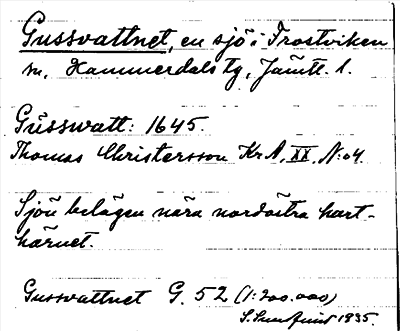 Gussvattnet, en sjö i Frostviken
sn, Hammerdals tg, Jämtl. l.
Gússwatt: 1645.
Thomas Christersson Kr. A, XX, N:o4.
Sjön belägen nära nordöstra hart-
hörnet.
Gussvattnet G. 52 (1:200.000)
1935